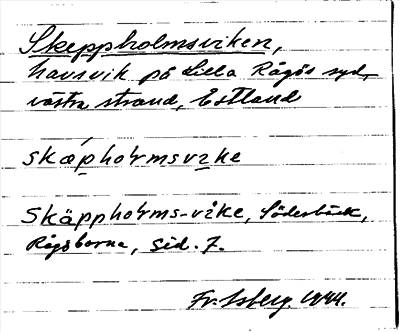 Skeppholmsviken,
havsvik på Lilla Rågös syd-
västra strand, Estland
skäpholmsvike
Skäppholms-vike, Söderbäck,
Rågöborna, sid. 7.
Fr. Isberg. 1944.